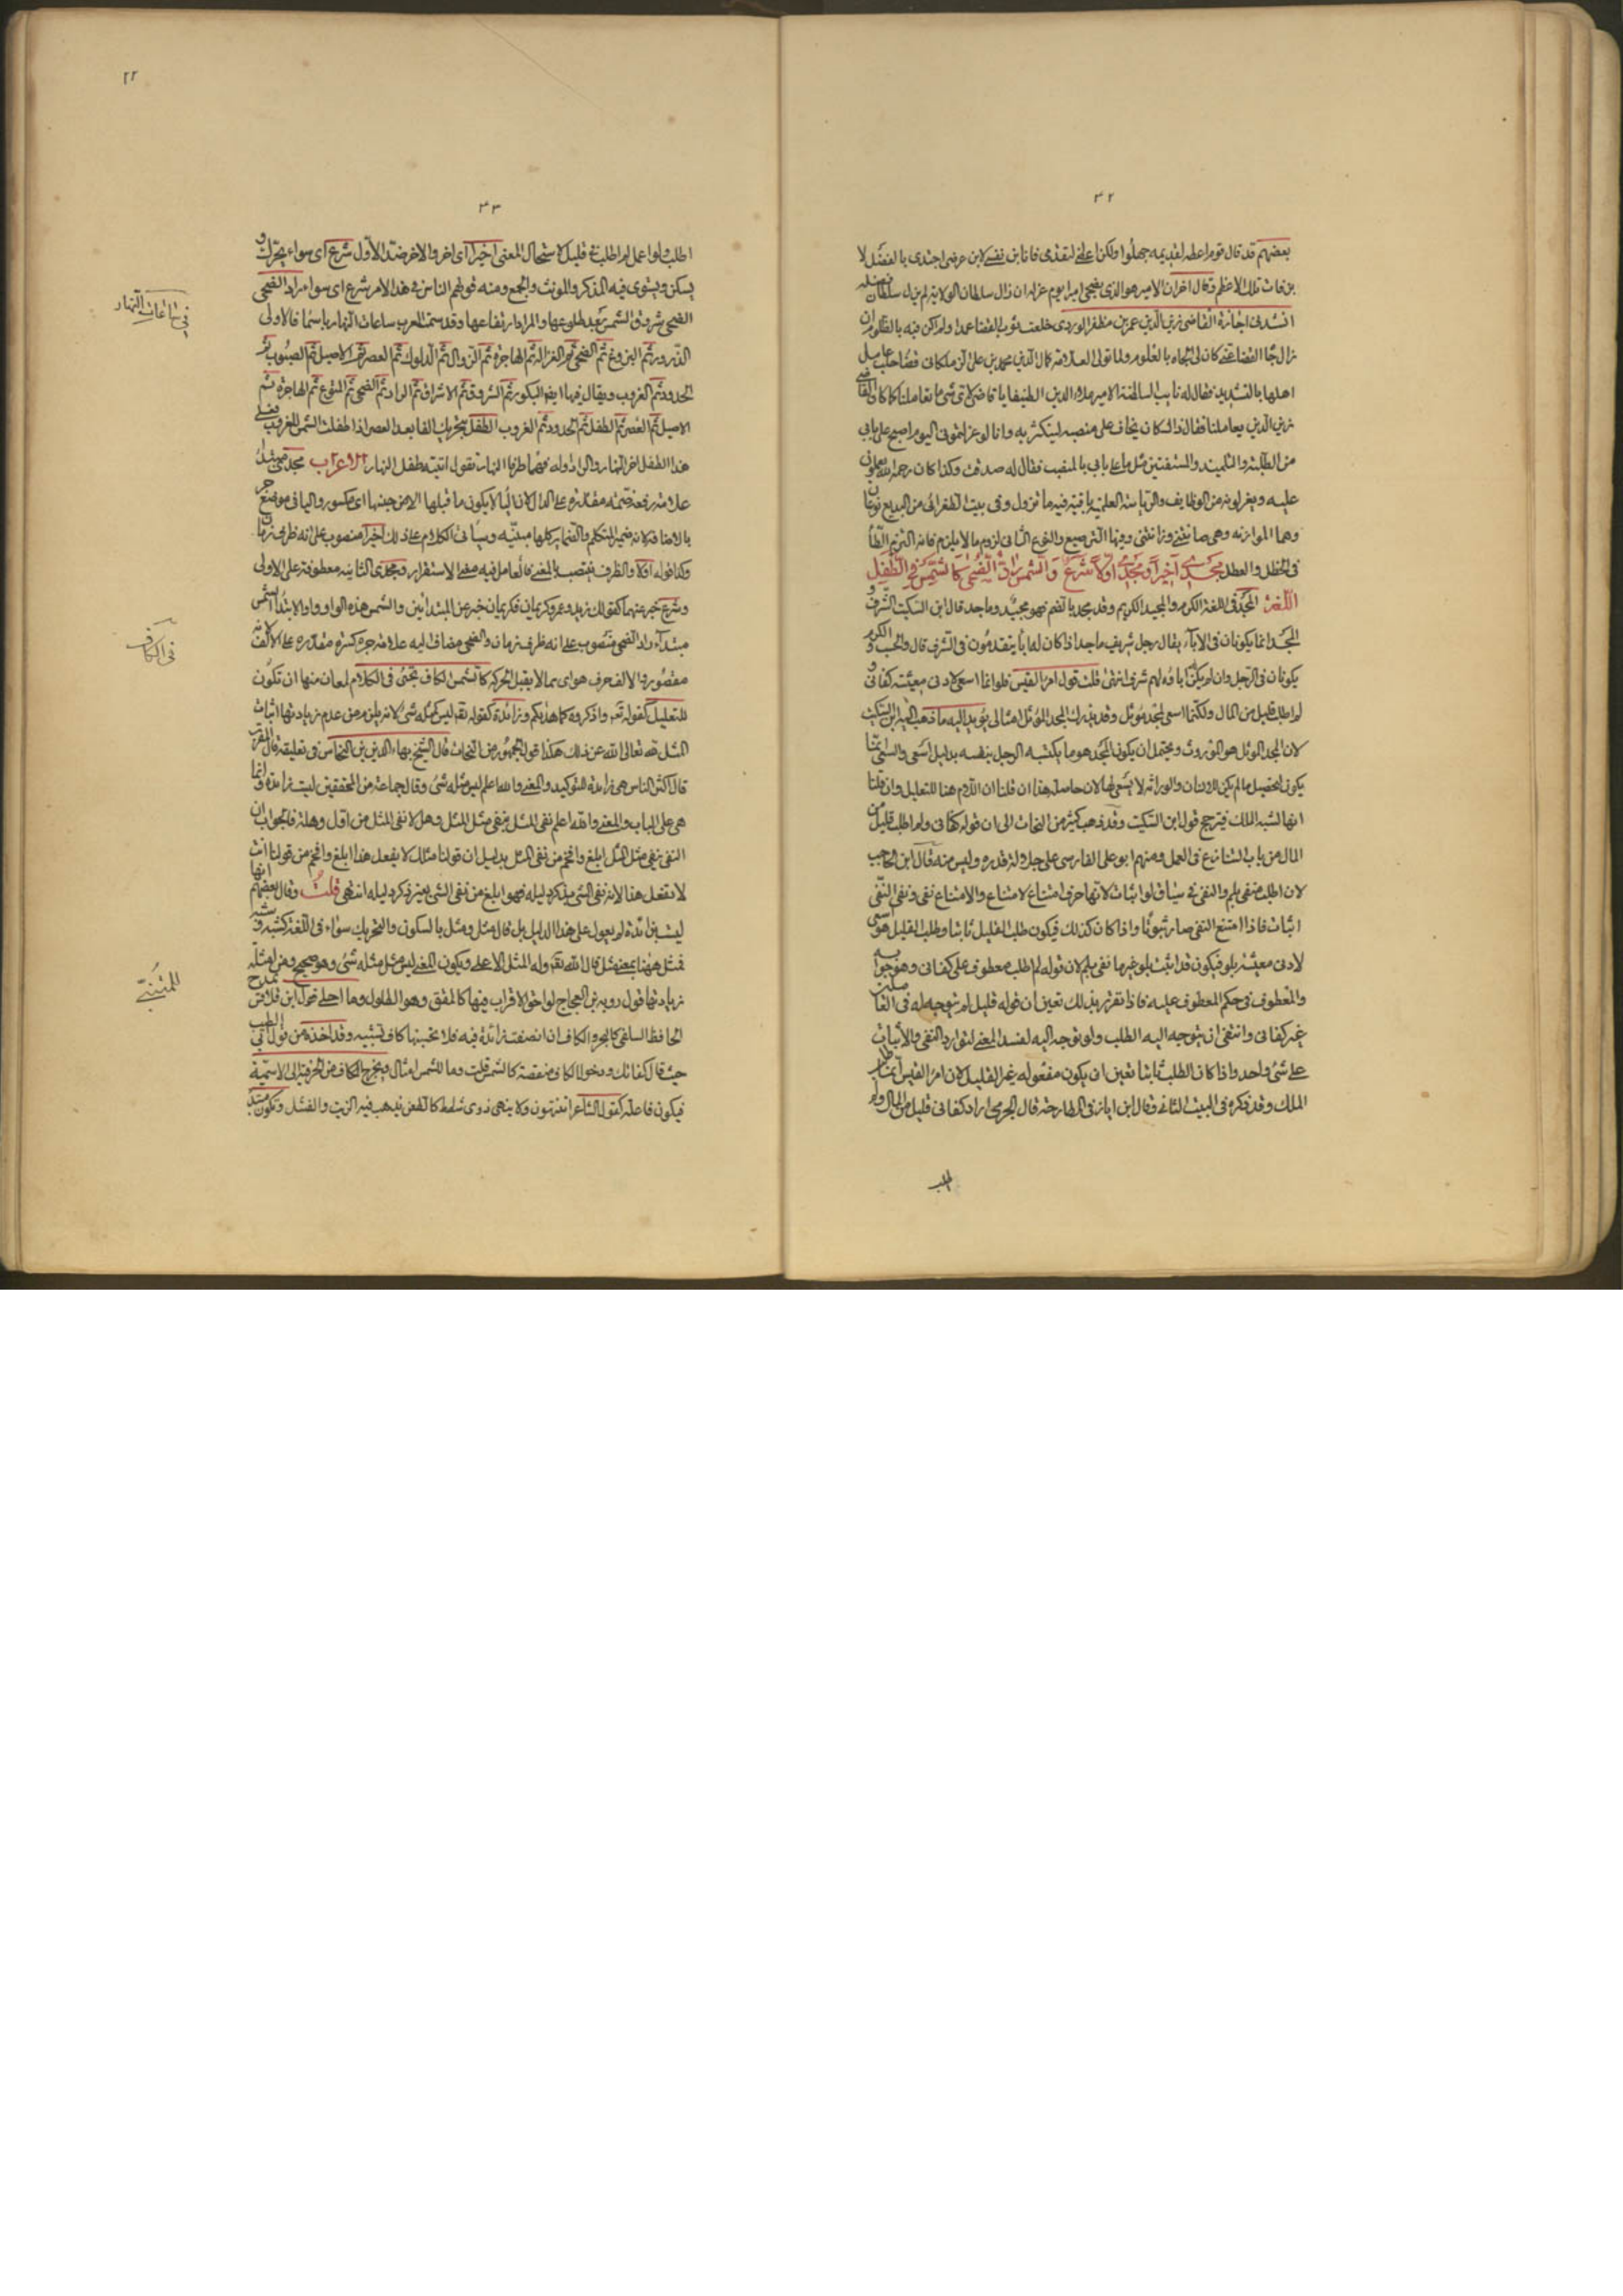 ٣٢
بعضهم قد قال قوم اعطه لقديمه جهلوا ولكن اعطنى لتقدمى فانا ابن نفسى لا ابن عرضى اجتدى بالفضل لا
برفات تلك الاعظم وقال اخر ان الامير هو الذى يضحى اميرا يوم عزله ان زال سلطان الولاية لم يزل سلطان فضله
انشدنى اجازة القاضى زين الدين عمر بن مظفر الوردى خلعت ثوب القضا عمدا ولم اكن فيه بالظلوم ان
زال جاه القضا عنى كان لى الجاه بالعلوم ولما تولى العلامة كمال الدين محمد بن على الزملكانى قضا حلب عامل
اهلها بالتشديد فقال له نايب السلطنة الامير علاء الدين الطنبغا يا قاضى لاى شى ما تعاملنا كما كان القاضى
زين الدين يعاملنا فقال ذاك كان يخاف على منصبه ليتكثر به وانا لو عزلتمونى اليوم اصبح على بابى
من الطلبة والتلاميذ والمستفتين مثل ما على بابى بالمنصب فقال له صدقت وكذا كان رحمه الله يعلو فى
عليه ويعزلونه من الوظايف والرياسة العلمية باقية فيه ما تزول وفى بيت الطغرائى من البديع نوعان
وهما الموازنه وهى صانتنى وزانتنى وفيها الترصيع والنوع الثانى لزوم ما لا يلزم فانه التزم الطاء
فى الخطل والعطل مجدى اخيرا ومجدى اولا شرع والشمس راد الضحى كالشمس فى الطفل
اللغة المجد فى اللغة الكرم والمجيد الكريم وقد مجد بالضم فهو مجيد وماجد قال ابن السكيت الشرف و
المجد انما يكونان فى الاباء يقال رجل شريف ماجد اذا كان له اباء يتقدمون فى الشرف قال والحسب والكرم
يكونان فى الرجل وان لم يكن اباؤه لهم شرف انتهى قلت قول امرؤ القيس فلو انما اسعى لادنى معيشة كفانى و
لم اطلب قليل من المال ولكنما اسعى لمجد مؤثل وقد يدرك المجد المؤثل امثالى يؤيد اليه ما ذهب اليه ابن السكيت
لان المجد المؤثل هو الموروث ويحتمل ان يكون المجد هو ما يكتسبه الرجل بنفسه بدليل اسعى والسعى انما
يكون لتحصيل ما لم يكن لان والوراثة لا يسعى لها لان حاصلة هذا ان قلنا ان اللام هنا للتعليل وان قلنا
انها لشبه الملك فيترجح قول ابن السكيت وقد ذهب كثير من النحاة الى ان قوله كفانى ولم اطلب قليل من
المال من باب التنازع فى العمل ومنهم ابو على الفارسى على جلالة قدره وليس منه قال ابن الحاجب
لان اطلب منفى بلم والنفى فى سياق لو اثبات لانها حرف امتناع لامتناع والامتناع نفى ونفى النفى
اثبات فاذا امتنع النفى صار ثبوتا واذا كان كذلك فيكون طلب القليل ثابتا وطلب القليل هو اسعى
لادنى معيشة بلو فيكون قد اثبت بلو غير ما نفى بلم لان قوله لم اطلب معطوف على كفانى وهو جوابه
والمعطوف فى حكم المعطوف عليه فاذا تقرر بذلك تعين ان قوله قليل لم يتوجه له فى الفاعلية
غير كفانى وانتفى ان يتوجه اليه الطلب ولو توجه اليه لفسد المعنى لتوارد النفى والاثبات
على شى واحد واذا كان الطلب ثابتا تعين ان يكون مفعوله غير القليل لان امرؤ القيس انما طلب
الملك وقد ذكره فى البيت الثانى وقال ابن اياز فى المطارحة قال الجرمى اراد كفانى قليل من المال ولم
اطلب
٢٢
٣٣
اطلب ولو اعمل لم اطلب فى قليل لاستحال المعنى اخيرا اى اخر والاخر ضد الاول شرع اى سواء يحرك و
يسكن ويستوى فيه المذكر والمونث والجمع ومنه قولهم الناس فى هذا الامر شرع اى سواء راد الضحى
الضحى شروق الشمس بعد طلوعها والمراد ارتفاعها وقد سمت العرب ساعات النهار باسما فالاولى
الذرور ثم البزوغ ثم الضحى ثم الغزالة ثم الهاجرة ثم الزوال ثم الدلوك ثم العصر ثم الاصيل ثم الصبوب ثم
الحدود ثم الغروب ويقال فيها ايضا البكور ثم الشروق ثم الاشراق ثم الراد ثم الضحى ثم المتوع ثم الهاجرة ثم
الاصيل ثم العصر ثم الطفل ثم الحدود ثم الغروب الطفل بتحريك الفا بعد العصر اذا طفلت الشمس للغروب فعلى
هذا الطفل اخر النهار والراد اوله فهما طرفا النهار تقول اتيته طفل النهار الاعراب مجدى مبتدا
علامة رفعه ضمة مقدرة على الدال لان اليا لا يكون ما قبلها الا من جنسها اى مكسور واليا فى موضع جر
بالاضافة لانه ضمير المتكلم والضماير كلها مبنيه وسياتى الكلام على ذلك اخيرا منصوب على انه ظرف زمان
وكذا قوله اولا والظرف ينتصب بالمعنى فالعامل فيه معنى الاستقرار ومجدى الثانيه معطوفة على الاولى
وشرع خبر عنهما كقولك زيد وعمرو كريمان فكريمان خبر عن المبتداين والشمس هذه الواو واو الابتدا الشمس
مبتدا راد الضحى منصوب على انه ظرف زمان والضحى مضاف اليه علامة جره كسرة مقدره على الالف لانه
مقصور والالف حرف هواى مما لا يقبل الحركة كالشمس الكاف تجئ فى الكلام لمعان منها ان تكون
للتعليل كقوله تعه واذكروه كما هديكم وزائدة كقوله تعه ليس كمثله شئ لانه يلزم من عدم زيادتها اثبات
المثل لله تعالى الله عن ذلك هكذا قول الجمهور من النحاة قال الشيخ بهاء الدين بن النحاس فى تعليقه قال المقرب
قال اكثر الناس هى زايدة للتوكيد والمعنى والله اعلم ليس مثله شى وقال جماعة من المحققين ليست زايدة وانما
هى على الباب والمعنى والله اعلم نفى المثل بنفى مثل المثل وهل لا نفى المثل من اول وهلة فالجواب ان
النفى بنفى مثل المثل ابلغ وافخم من نفى المثل بدليل ان قولنا مثلك لا يفعل هذا ابلغ وافخم من قولنا انت
لا تفعل هذا لانه نفى الشى بذكر دليله فهو ابلغ من نفى الشى بغير ذكر دليله انتهى قلت وقال بعضهم انها
ليست زائدة لم يعول على هذا الدليل بل قال مثل ومثل بالسكون والتحريك سواء فى اللغة كشبه وشبه
فمثل ههنا بمعنى مثل قال الله تعه وله المثل الاعلى ويكون المعنى ليس مثل مثله شئ وهو صحيح ومن امثلة
زيادتها قول روبة بن العجاج لواحق الاقراب فيها كالمقق وهو الطول وما احلى قول ابن قلاقس يمدح
الحافظ السلفى كالبحر والكاف ان انصفت زائدة فيه فلا تحسبنها كاف تشبيه وقد اخذه من قول ابى الطيب
حيث قال كفاتك ودخول الكاف منقصة كالشمس قلت وما للشمس امثال ويخرج الكاف من الحرفية الى الاسمية
فيكون فاعلة كقول الشاعر اتنتهون ولا ينهى ذوى شطط كالطعن يذهب فيه الزيت والفتل وتكون مبتدا
فى ساعات النهار
فى الكاف
للمتنبى